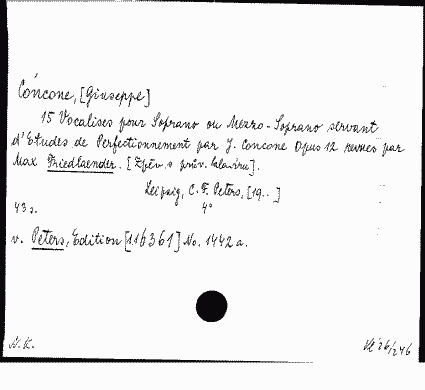 Concone, [Giuseppe]
15 Vocalises pour Soprano ou Mezzo-Soprano servant
d'Etudes de Perfectionnement par J. Concone Opus 12 revues par
Max Friedlaender. [Zpěv s prův. klavíru].
Leipzig, C. F. Peters, [19..]
43 s. 4°
v. Peters, Edition [116361] No. 1442 a.
N.K. Vč 26/246